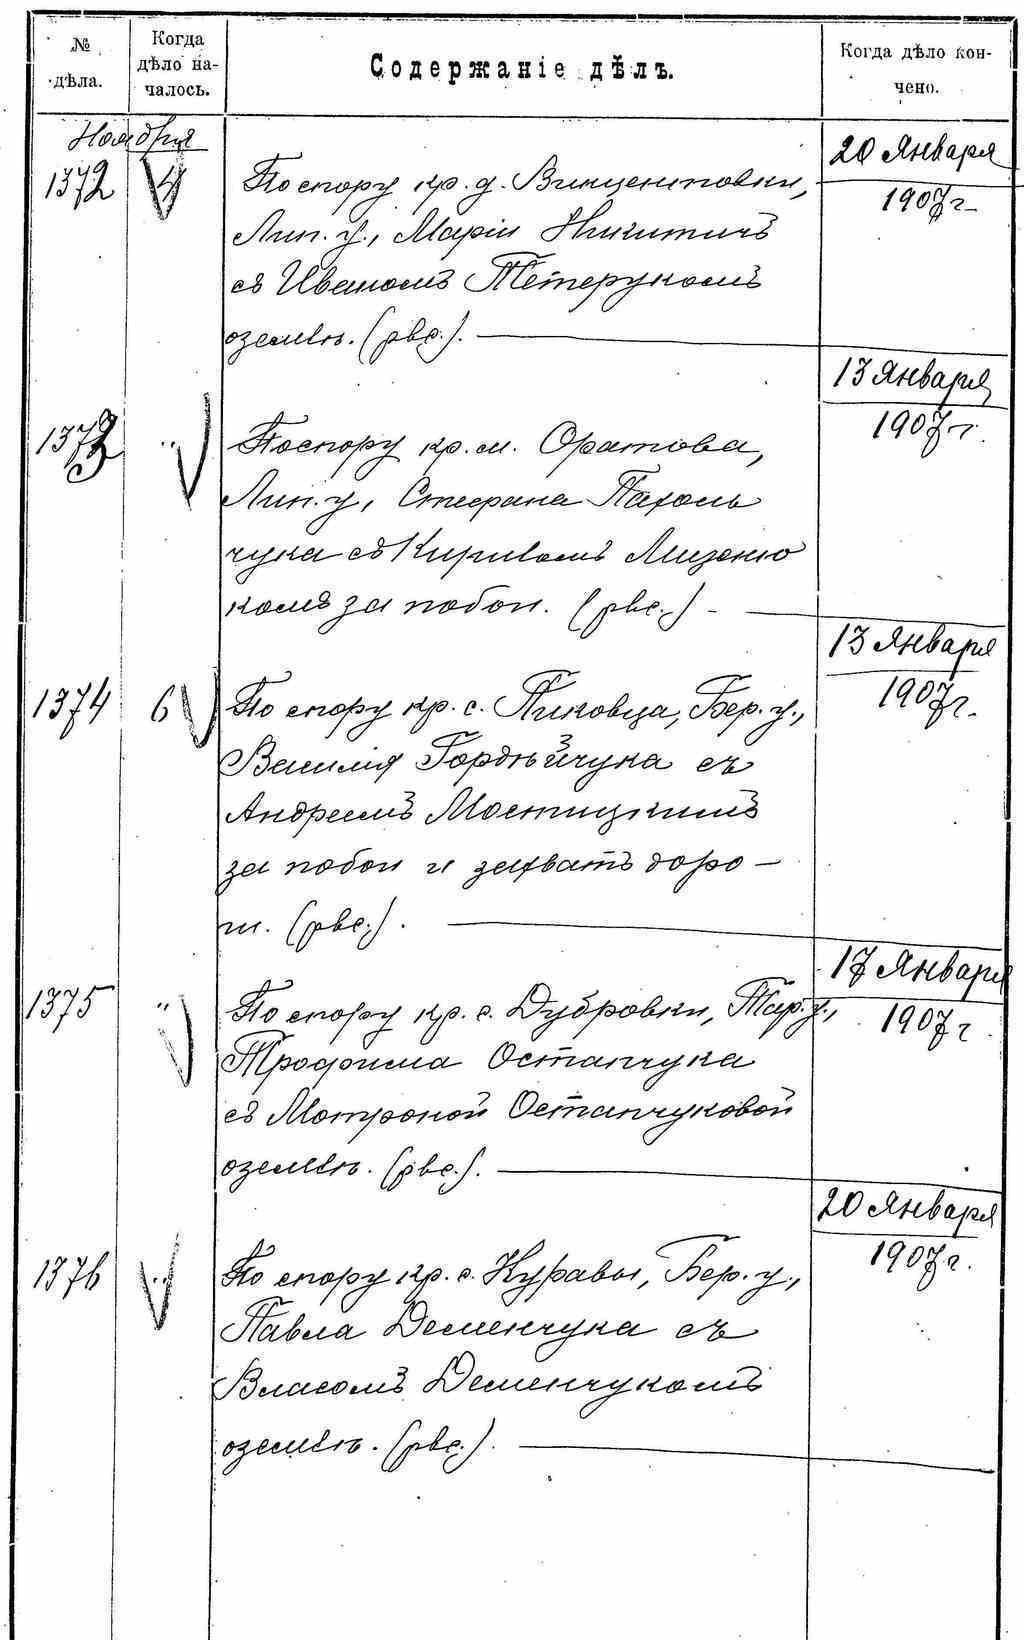 № дѣла.
Когда дѣло на-
чалось.
Содержаніе дѣлъ.
Когда дѣло кон-
чено.
Ноября
1372 4 По спору кр. д. Винцентовки, 20 Января
Лип. у., Маріи Никитичъ 1907 г.
съ Иваномъ Тетерукомъ
о землѣ. (рвс.).
1373 " По спору кр. м. Оратова, 13 Января
Лип. у., Стефана Пахоль 1907 г.
чука съ Кириломъ
комъ за побои. (рвс.)
1374 6 По спору кр. с. Пиковца, Бер. у., 13 Января
Василія Гордѣйчука съ 1907 г.
Андреемъ Мостицкимъ
за побои и захватъ доро-
ги. (рвс.).
1375 " По спору кр. с. Дубровки, Тар. у., 17 Января
Трофима Остапчука 1907 г.
съ Мотроной Остапчуковой
о землѣ. (рвс.).
1376 " По спору кр. с. Журавы, Бер. у., 20 Января
Павла Деменчука съ 1907 г.
Власомъ Деменчукомъ
о землѣ. (рвс.).